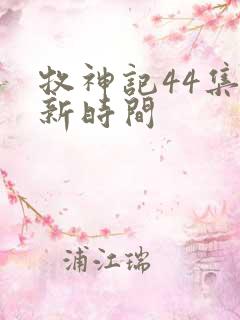 牧神記44集
新時間
浦江瑞